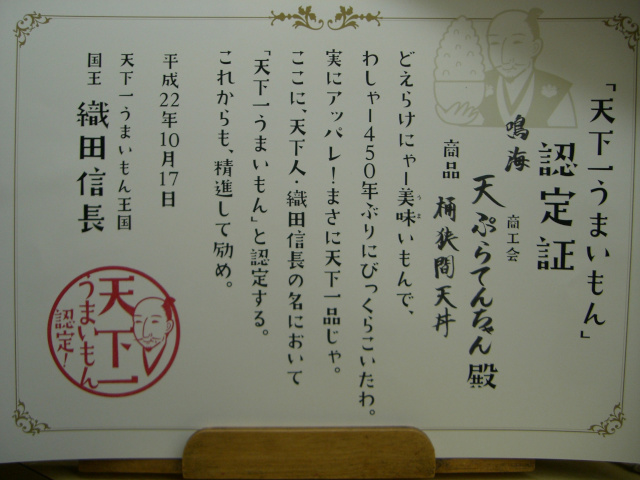 「天下一うまいもん」
認定証
鳴海商工会
天ぷらてんちゃん殿
商品 桶狭間天丼
どえらけにゃー美味いもんで、
うま
わしゃー450年ぶりにびっくらこいたわ。
実にアッパレ!まさに天下一品じゃ。
ここに、天下人・織田信長の名において
「天下一うまいもん」と認定する。
これからも、精進して励め。
平成22年10月17日
天下一うまいもん王国
国王 織田信長
天下一
うまいもん
認定!